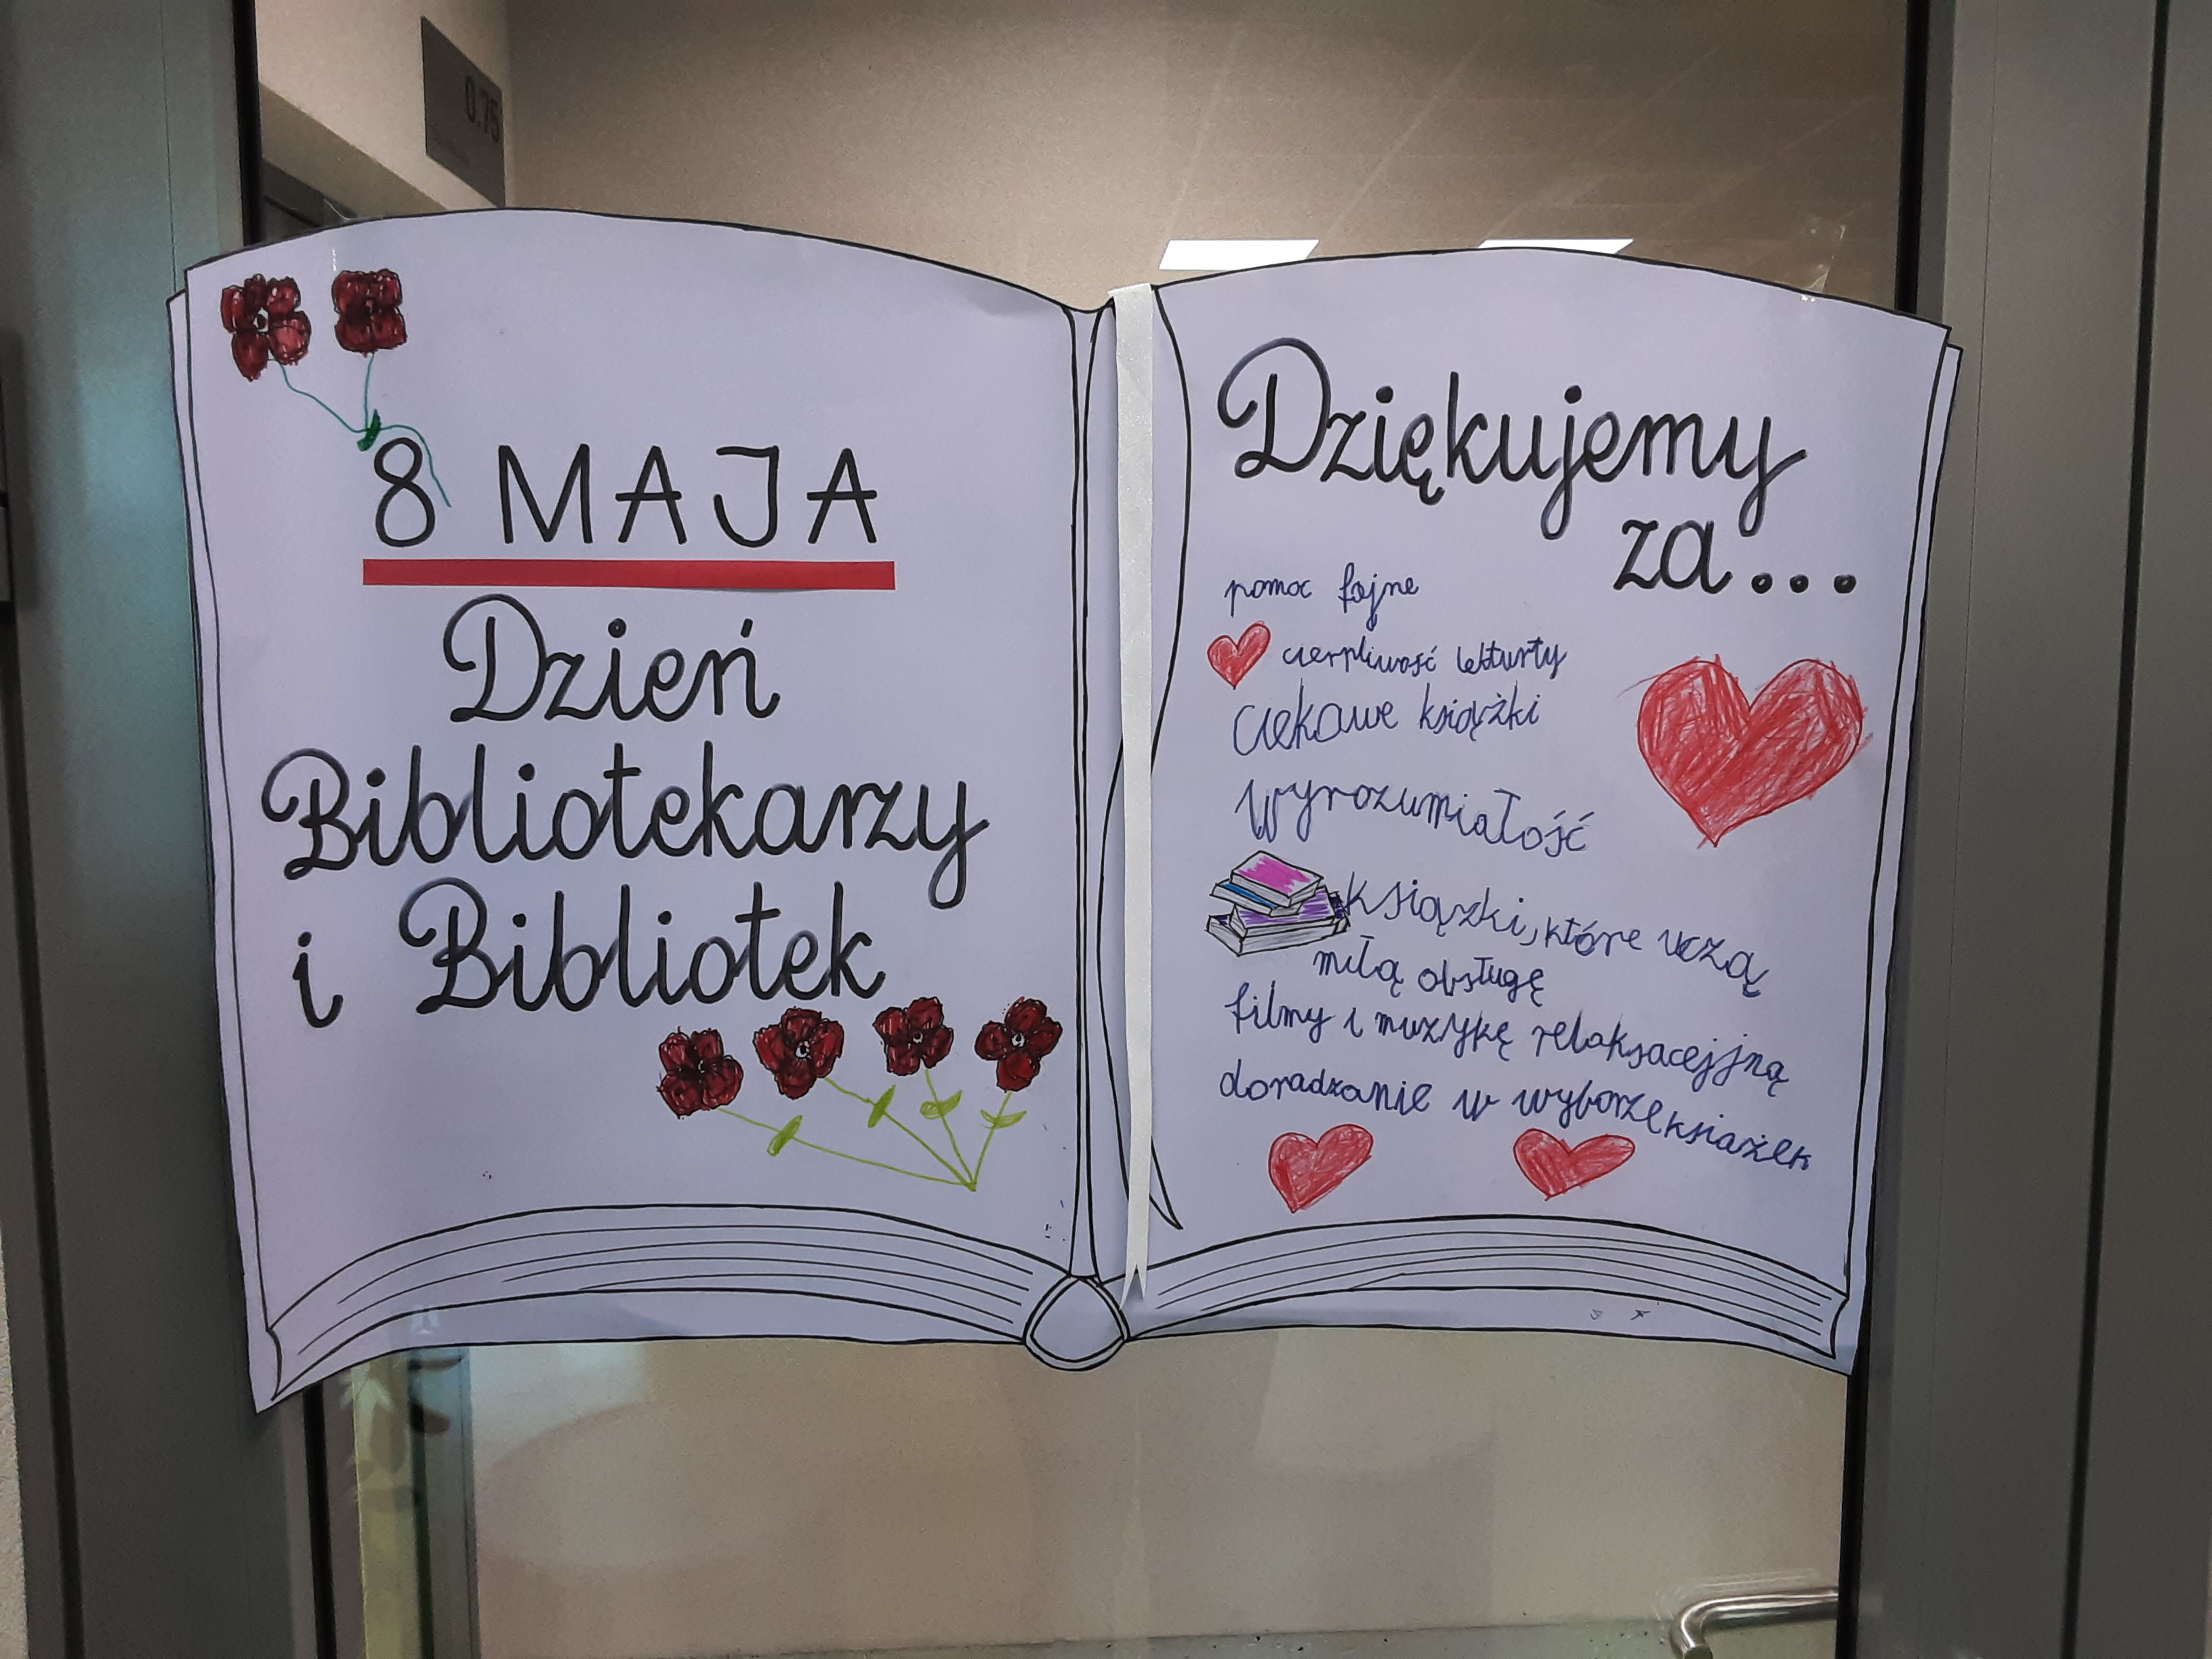 0.75
8 MAJA
Dzień
Bibliotekarzy
i Bibliotek
Dziękujemy
za...
pomoc fajne
cierpliwość lekturty
ciekawe książki
wyrozumiałość
książki, które uczą
miłą obsługę
filmy i muzykę relaksacejjną
doradzanie w wyborze książek